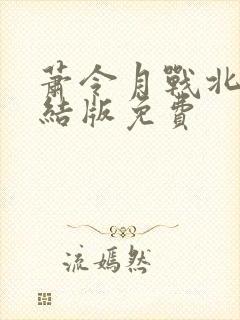 蕭令月戰北
結版免費
流嫣然